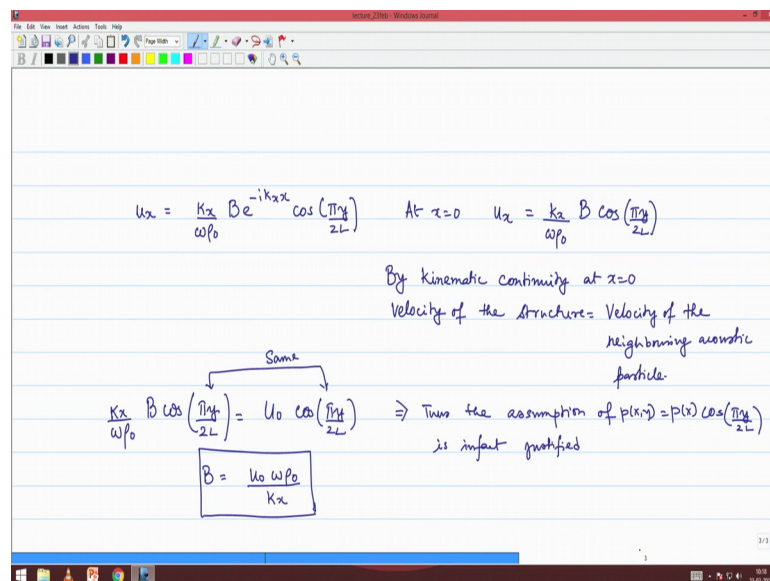 lecture_23feb - Windows Journal
File Edit View Insert Actions Tools Help
Page Width
B I
u_x = k_x/ωρ₀ B e^{-ik_x x} cos(πy/2L)    At x=0    u_x = k_x/ωρ₀ B cos(πy/2L)
By kinematic continuity at x=0
Velocity of the structure = Velocity of the
neighbouring acoustic
particle.
Same
k_x/ωρ₀ B cos(πy/2L) = U₀ cos(πy/2L)    ⇒ Thus the assumption of p(x,y) = p(x) cos(πy/2L)
is infact justified
B = U₀ωρ₀/k_x
3/3
3
10:18